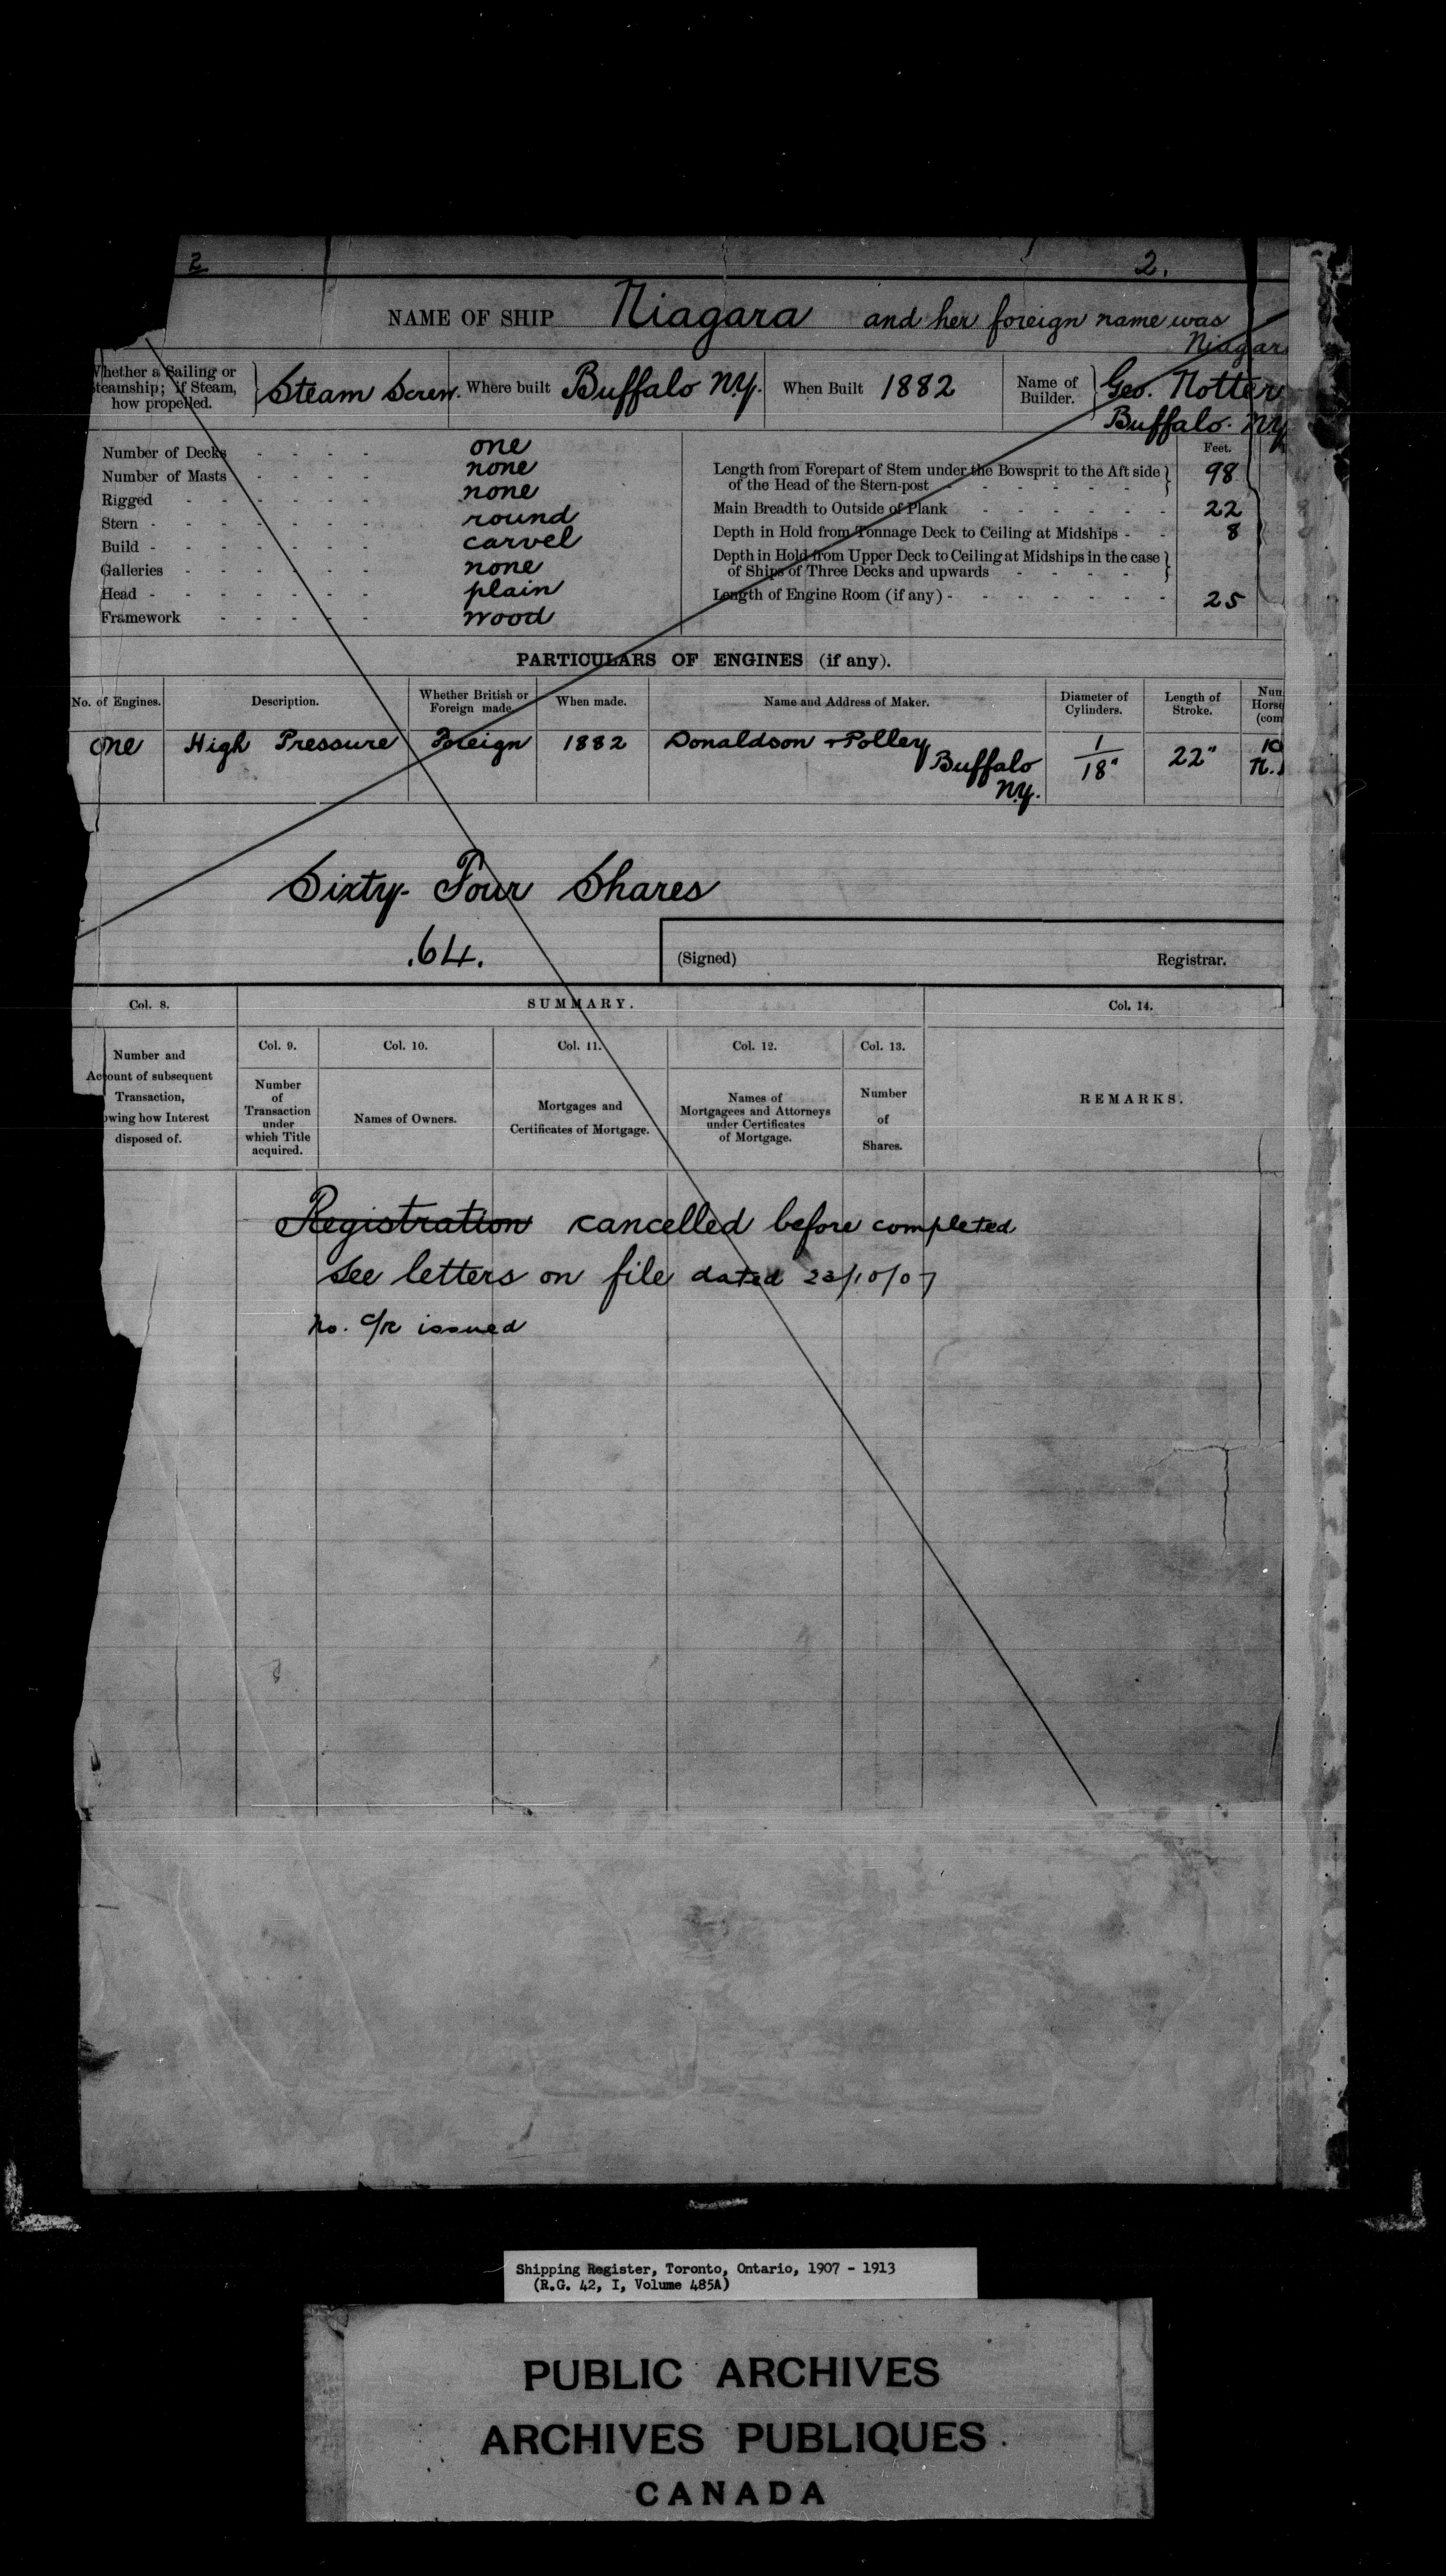 2
2.
NAME OF SHIP Niagara and her foreign name was
Niagar
Whether a Sailing or
Steamship; if Steam,
how propelled.
Steam Screw. Where built Buffalo N.Y. When Built 1882
Name of
Builder.
Geo. Notter
Buffalo. N.Y
Number of Decks - - - - one
Number of Masts - - - - none
Rigged - - - - - - none
Stern - - - - - - - round
Build - - - - - - - carvel
Galleries - - - - - - none
Head - - - - - - - plain
Framework - - - - - wood
Feet.
Length from Forepart of Stem under the Bowsprit to the Aft side
of the Head of the Stern-post - - - - - - 98
Main Breadth to Outside of Plank - - - - - - 22
Depth in Hold from Tonnage Deck to Ceiling at Midships - - 8
Depth in Hold from Upper Deck to Ceiling at Midships in the case
of Ships of Three Decks and upwards - - - -
Length of Engine Room (if any) - - - - - - - 25
PARTICULARS OF ENGINES (if any).
No. of Engines. Description. Whether British or
Foreign made. When made. Name and Address of Maker. Diameter of
Cylinders. Length of
Stroke. Num
Horse
(com
one High Pressure Foreign 1882 Donaldson + Polley
Buffalo
N.Y.
1
18"
22"
10
N.
Sixty-Four Shares
.64.
(Signed) Registrar.
Col. 8. SUMMARY. Col. 14.
Number and
Account of subsequent
Transaction,
owing how Interest
disposed of.
Col. 9. Col. 10. Col. 11. Col. 12. Col. 13.
Number
of
Transaction
under
which Title
acquired.
Names of Owners.
Mortgages and
Certificates of Mortgage.
Names of
Mortgagees and Attorneys
under Certificates
of Mortgage.
Number
of
Shares.
REMARKS.
Registration cancelled before completed
See letters on file dated 23/10/07
No. C/R issued
Shipping Register, Toronto, Ontario, 1907 - 1913
(R.G. 42, I, Volume 485A)
PUBLIC ARCHIVES
ARCHIVES PUBLIQUES
CANADA